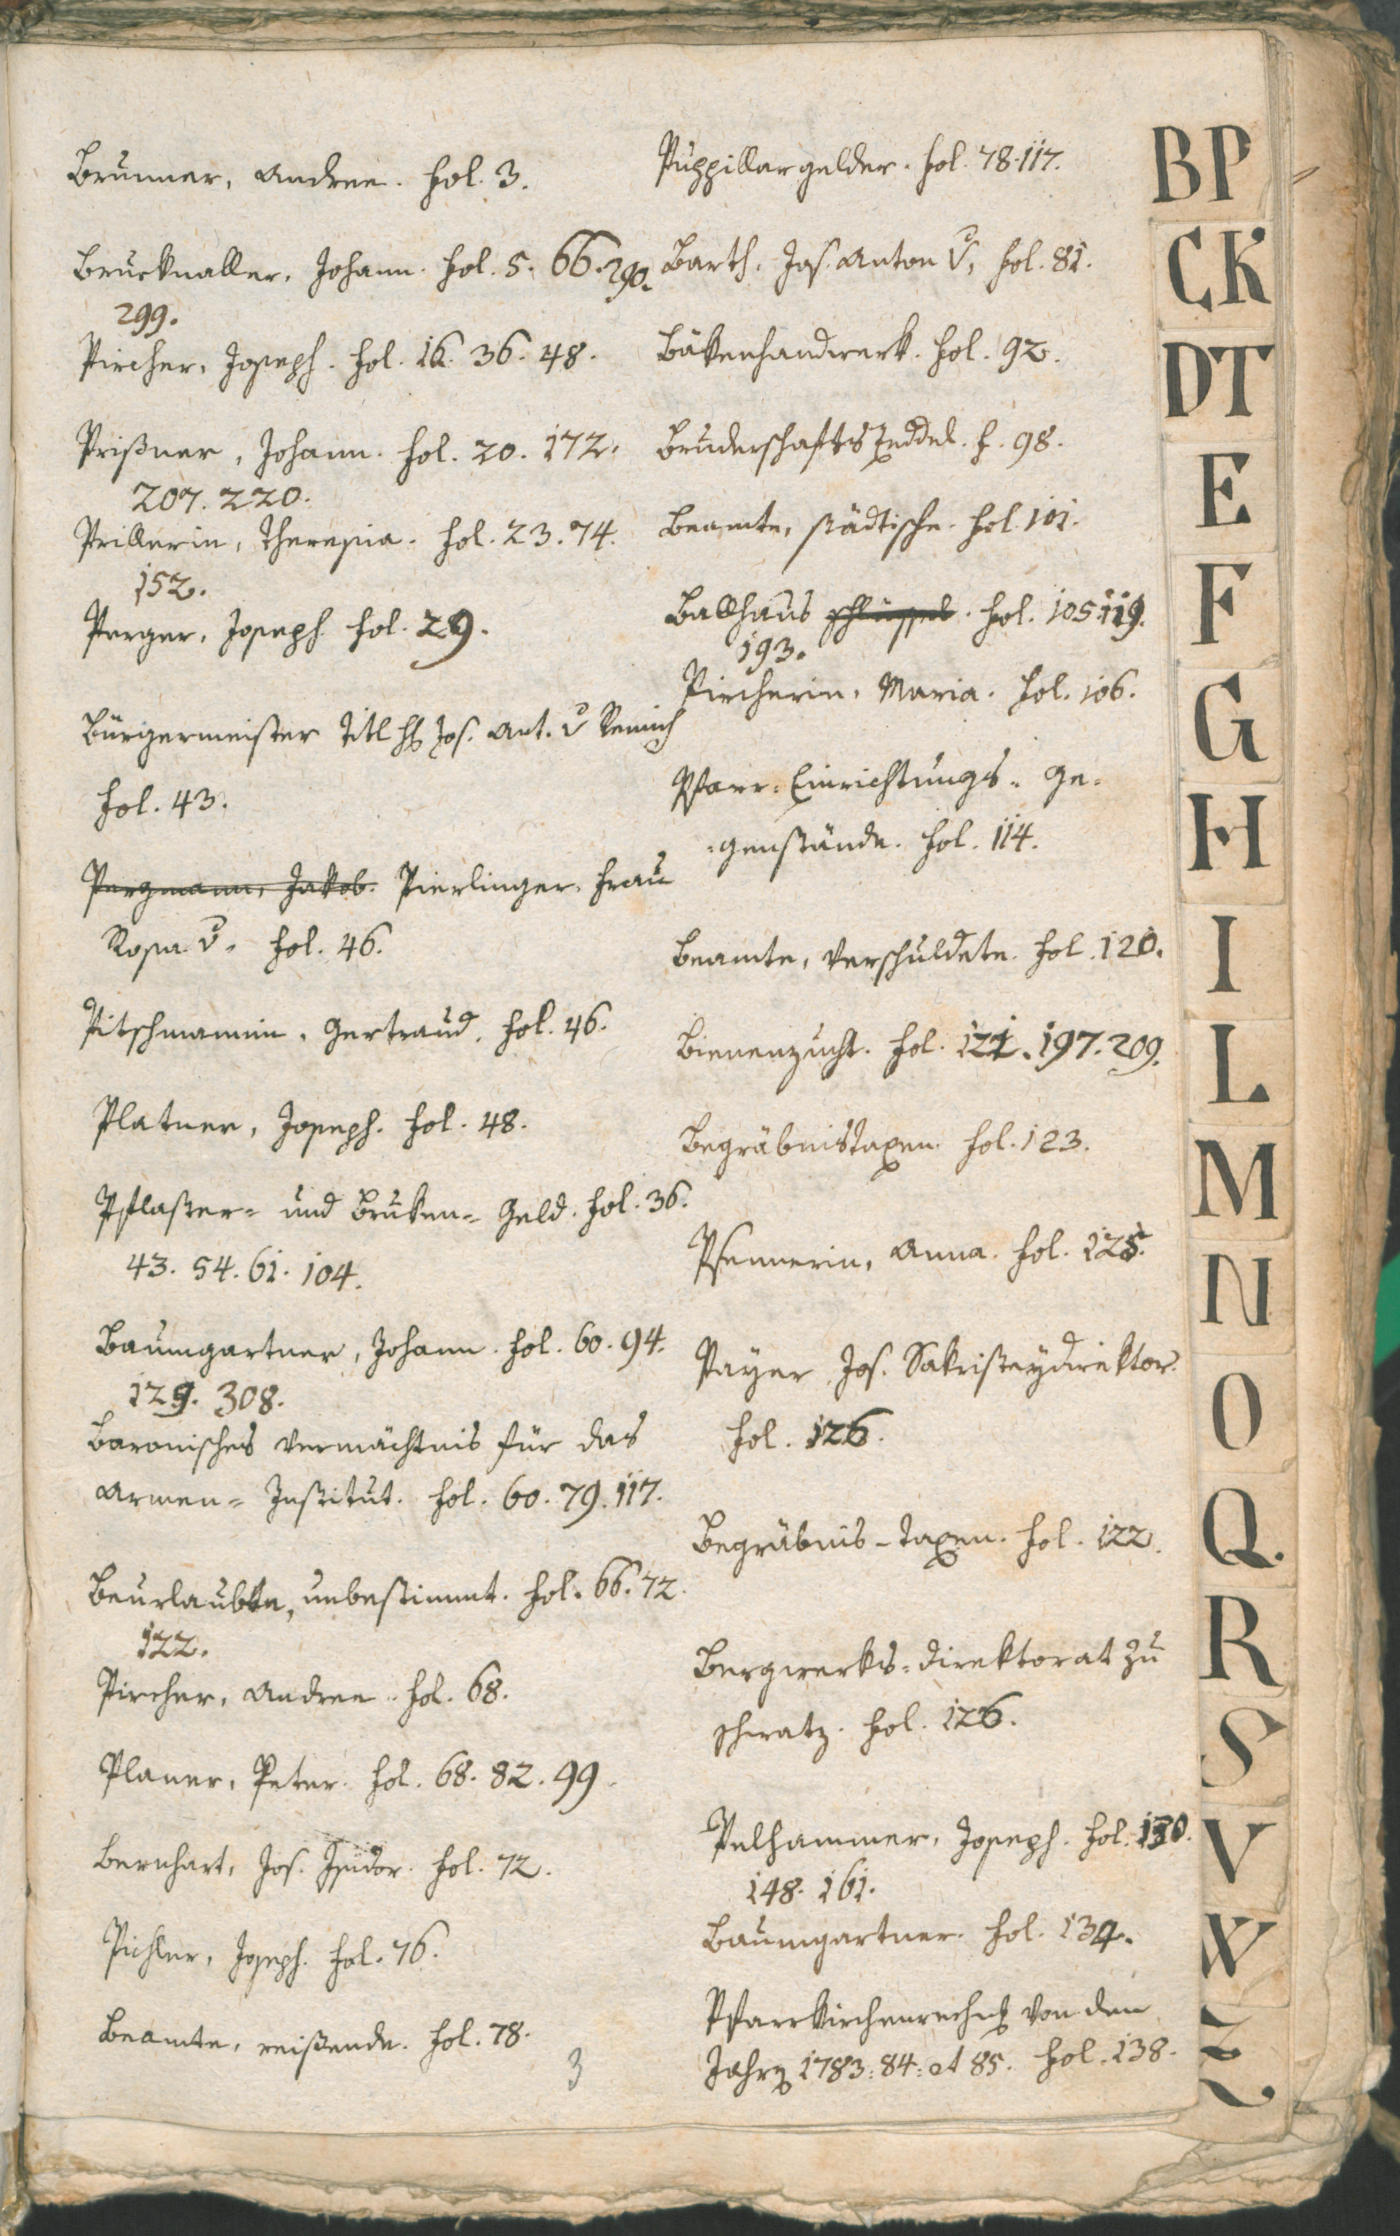 Brunner, Andree. fol. 3.
Brucknaller, Johann. fol. 5. 66. 290.
299.
Pircher, Joseph. fol. 16. 36. 48.
Prißner, Johann. fol. 20. 172.
207. 220.
Prillerin, Theresia. fol. 23. 74.
152.
Perger, Joseph. fol. 29.
Bürgermeister Titl H Jos. Ant. v Remich
fol. 43.
Pergmann, Jakob. Pierlinger, Frau
Rosa v. fol. 46.
Pitschmannin, Gertraud. fol. 46.
Platner, Joseph. fol. 48.
Pflaster= und Bruken= Geld. fol. 36.
43. 54. 61. 104.
Baumgartner, Johann. fol. 60. 94.
129. 308.
Baronisches Vermächtnis für das
Armen= Institut. fol. 60. 79. 117.
Beurlaubte, unbestimmt. fol. 66. 72.
122.
Pircher, Andree. fol. 68.
Planer, Peter. fol. 68. 82. 99.
Bernhart, Jos. Isidor. fol. 72.
Pichler, Joseph. fol. 76.
Beamte, reißende. fol. 78.
3
Puppillargelder. fol. 78. 117.
Barth, Jos. Anton v, fol. 81.
Bäkenhandwerk. fol. 92.
BruderschaftsZeddel. f. 98.
Beamte, städtische. fol. 101.
Ballhaus schlüssel. fol. 105. 119.
193.
Pircherin, Maria. fol. 106.
Pfarr=Einrichtungs= Ge=
=genstände. fol. 114.
Beamte, verschuldete. fol. 120.
Bienenzucht. fol. 121. 197. 209.
Begräbnistaxen. fol. 123.
Psennerin, Anna. fol. 125.
Payer Jos. Sakristeydirektor.
fol. 126.
Begräbnis-taxen. fol. 122.
Bergwerks=direktorat zu
Schwatz. fol. 126.
Pelhammer, Joseph. fol. 130.
148. 161.
Baumgartner. fol. 134.
Pfarrkirchenrechng von den
Jahren 1783: 84: et 85. fol. 138.
BP
CK
DT
E
F
G
H
I
L
M
N
O
Q.
R
S
V
W
Z